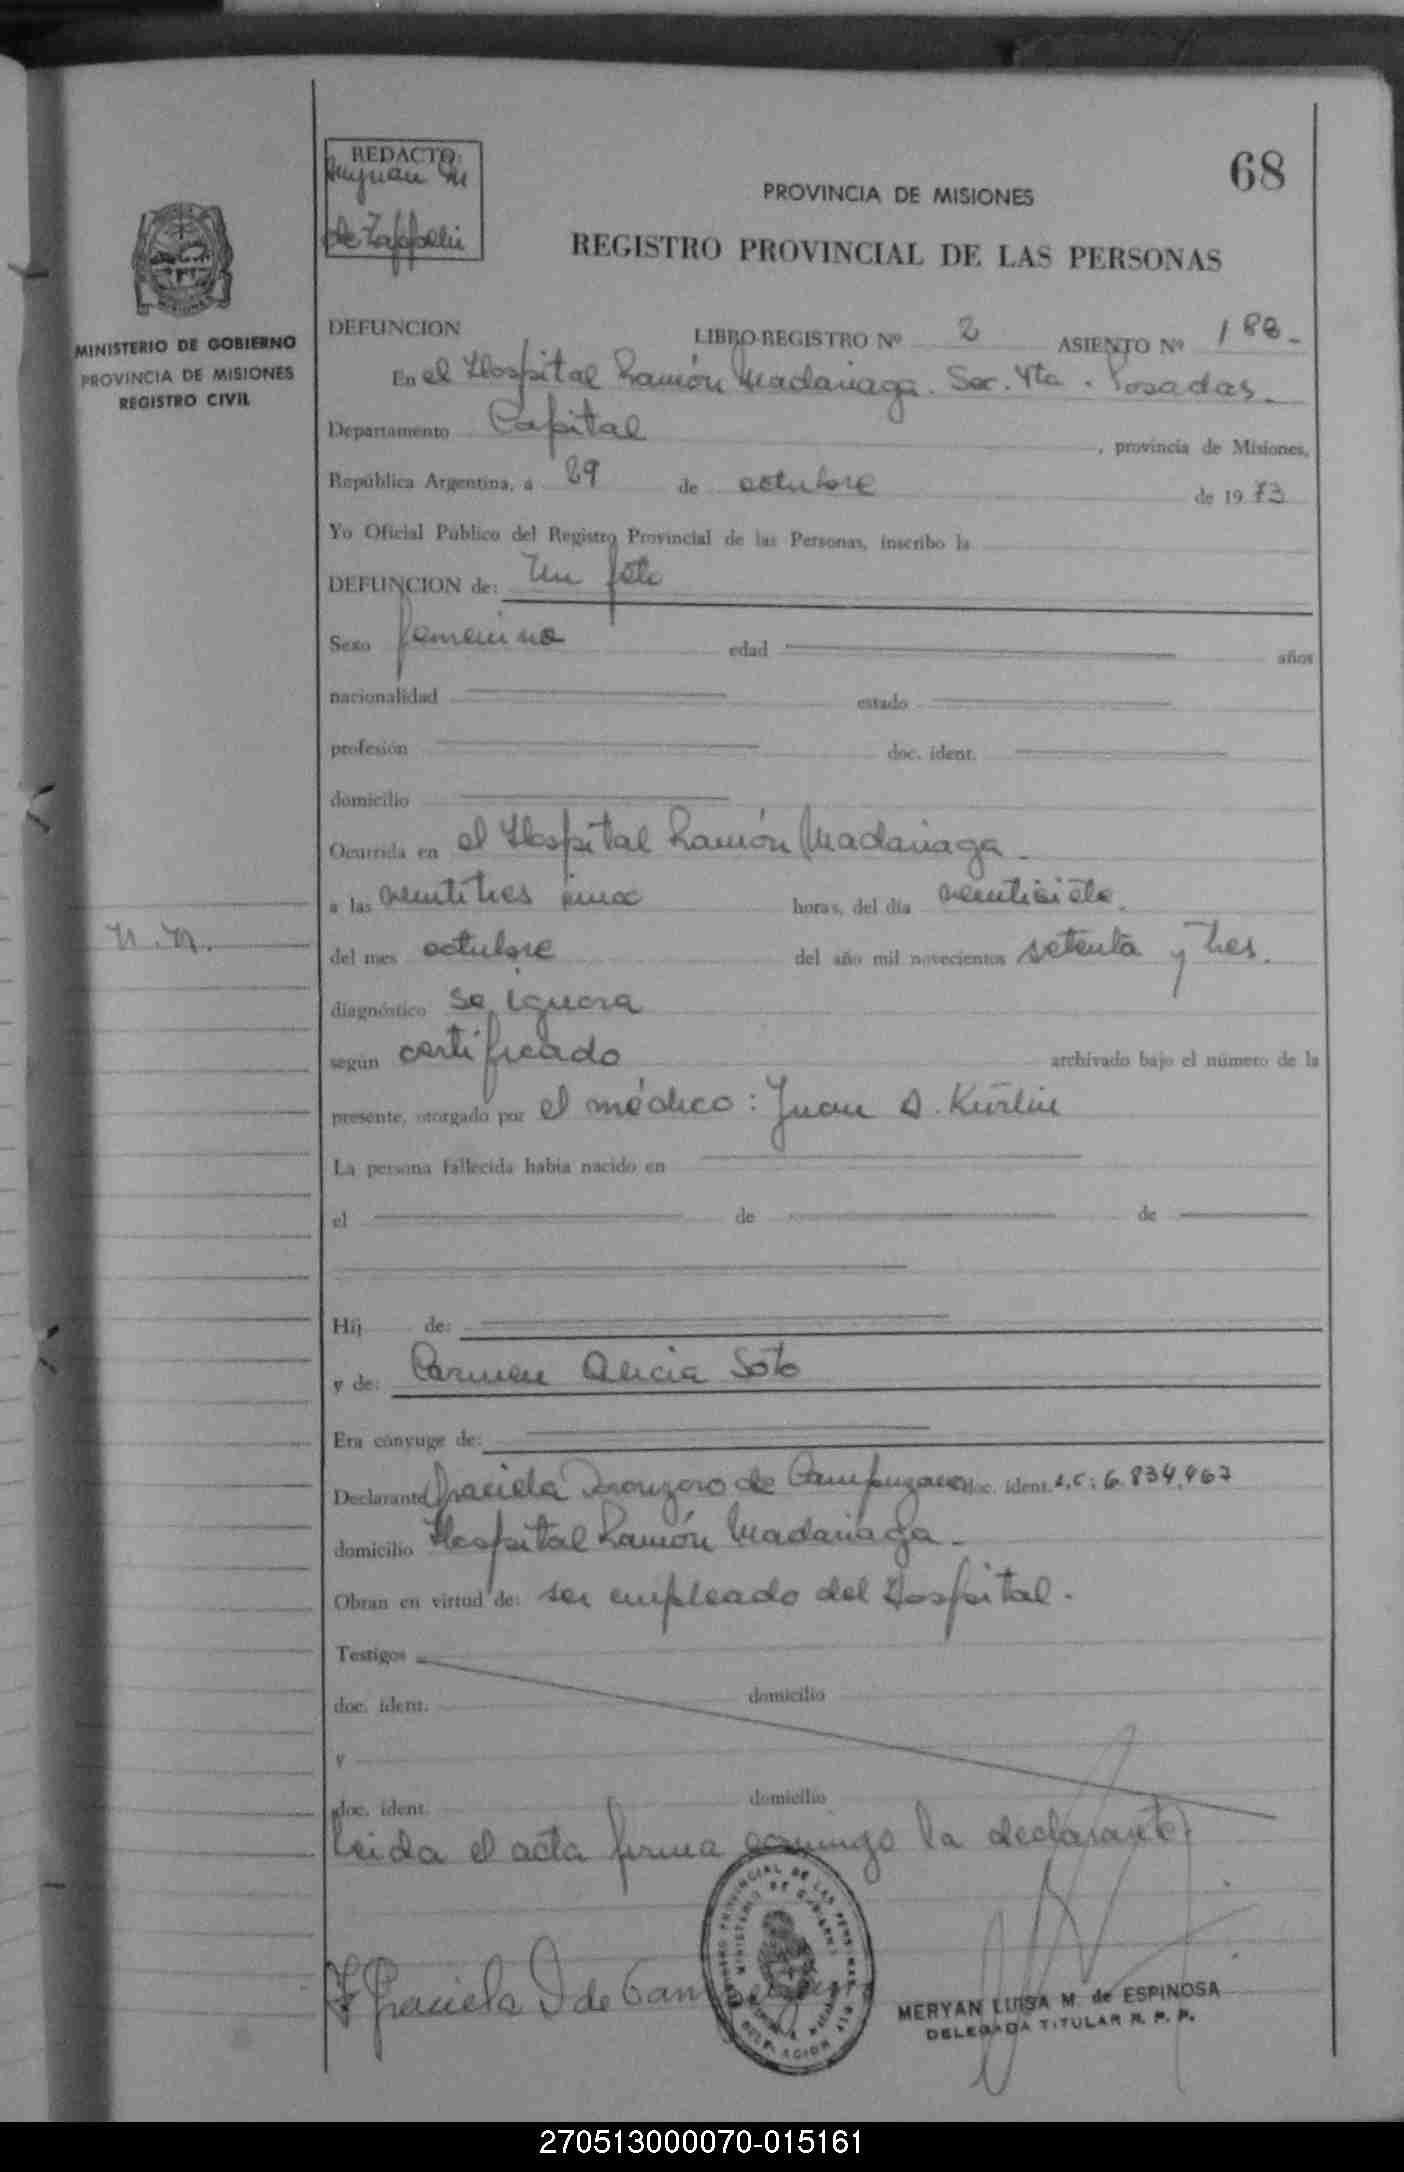 REDACTO:
de Zappelli
68
PROVINCIA DE MISIONES
REGISTRO PROVINCIAL DE LAS PERSONAS
MINISTERIO DE GOBIERNO
PROVINCIA DE MISIONES
REGISTRO CIVIL
DEFUNCION LIBRO-REGISTRO Nº 2 ASIENTO Nº 188.-
En el Hospital Ramón Madariaga. Sec. 4ta. Posadas.-
Departamento Capital, provincia de Misiones,
República Argentina, a 29 de octubre de 1973
Yo Oficial Público del Registro Provincial de las Personas, inscribo la
DEFUNCION de: Un feto
Sexo femenino edad años
nacionalidad estado
profesión doc. ident.
domicilio
Ocurrida en el Hospital Ramón Madariaga.-
a las veintitres horas, del día veintisiete.
n.n.
del mes octubre del año mil novecientos setenta y tres.
diagnóstico se ignora
según certificado archivado bajo el número de la
presente, otorgado por el médico: Juan A. Kürlin
La persona fallecida había nacido en
el de de
Hij de:
y de: Carmen Alicia Soto
Era cónyuge de:
Declarante Graciela de Campuzano doc. ident. L.C: 6.834.967
domicilio Hospital Ramón Madariaga.-
Obran en virtud de: ser empleado del Hospital.
Testigos
doc. ident. domicilio
y
doc. ident. domicilio
Leida el acta firma conmigo la declarante
Graciela D de Cam
REGISTRO PROVINCIAL DE LAS PERSONAS
MINISTERIO DE GOBIERNO
DELEGACION
MERYAN LUISA M. de ESPINOSA
DELEGADA TITULAR R. P. P.
270513000070-015161